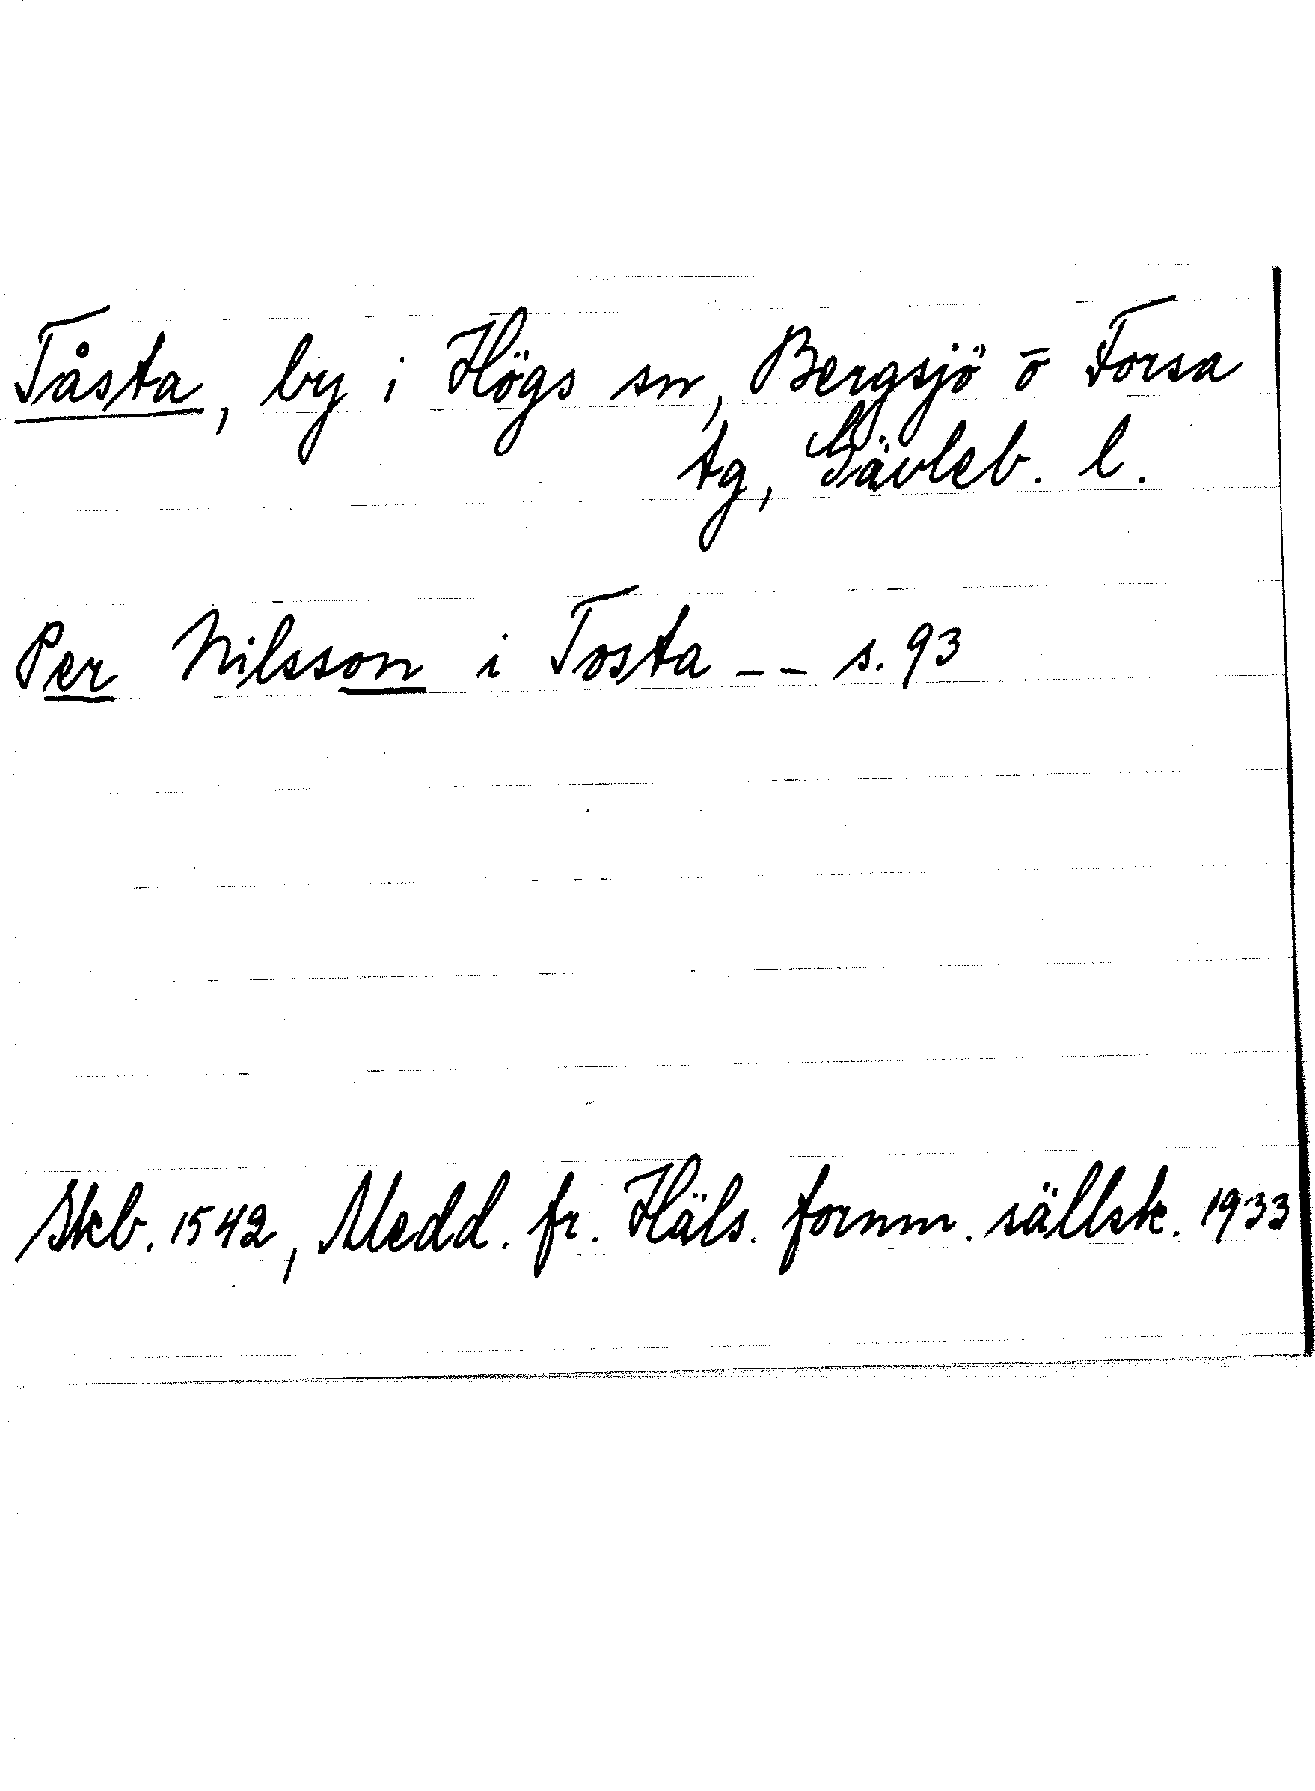 Tåsta, by i Högs sn, Bergsjö o Forsa
tg, Gävleb. l.
Per Nilsson i Tosta -- s. 93
Skb. 1542, Medd. fr. Häls. fornm. sällsk. 1933